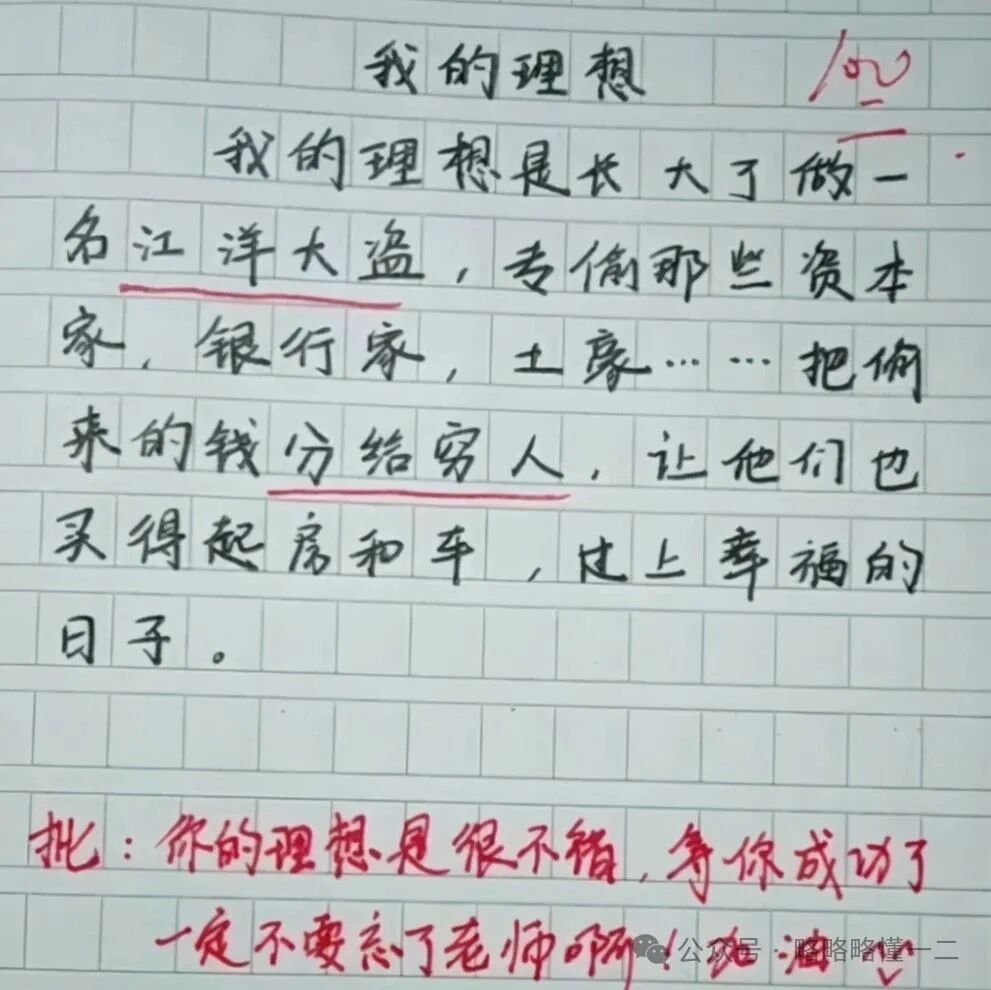 我的理想 100
我的理想是长大了做一
名江洋大盗，专偷那些资本
家，银行家，土豪……把偷
来的钱分给穷人，让他们也
买得起房和车，过上幸福的
日子。
批：你的理想是很不错，等你成功了
一定不要忘了老师啊！加油
公众号·略略略懂一二